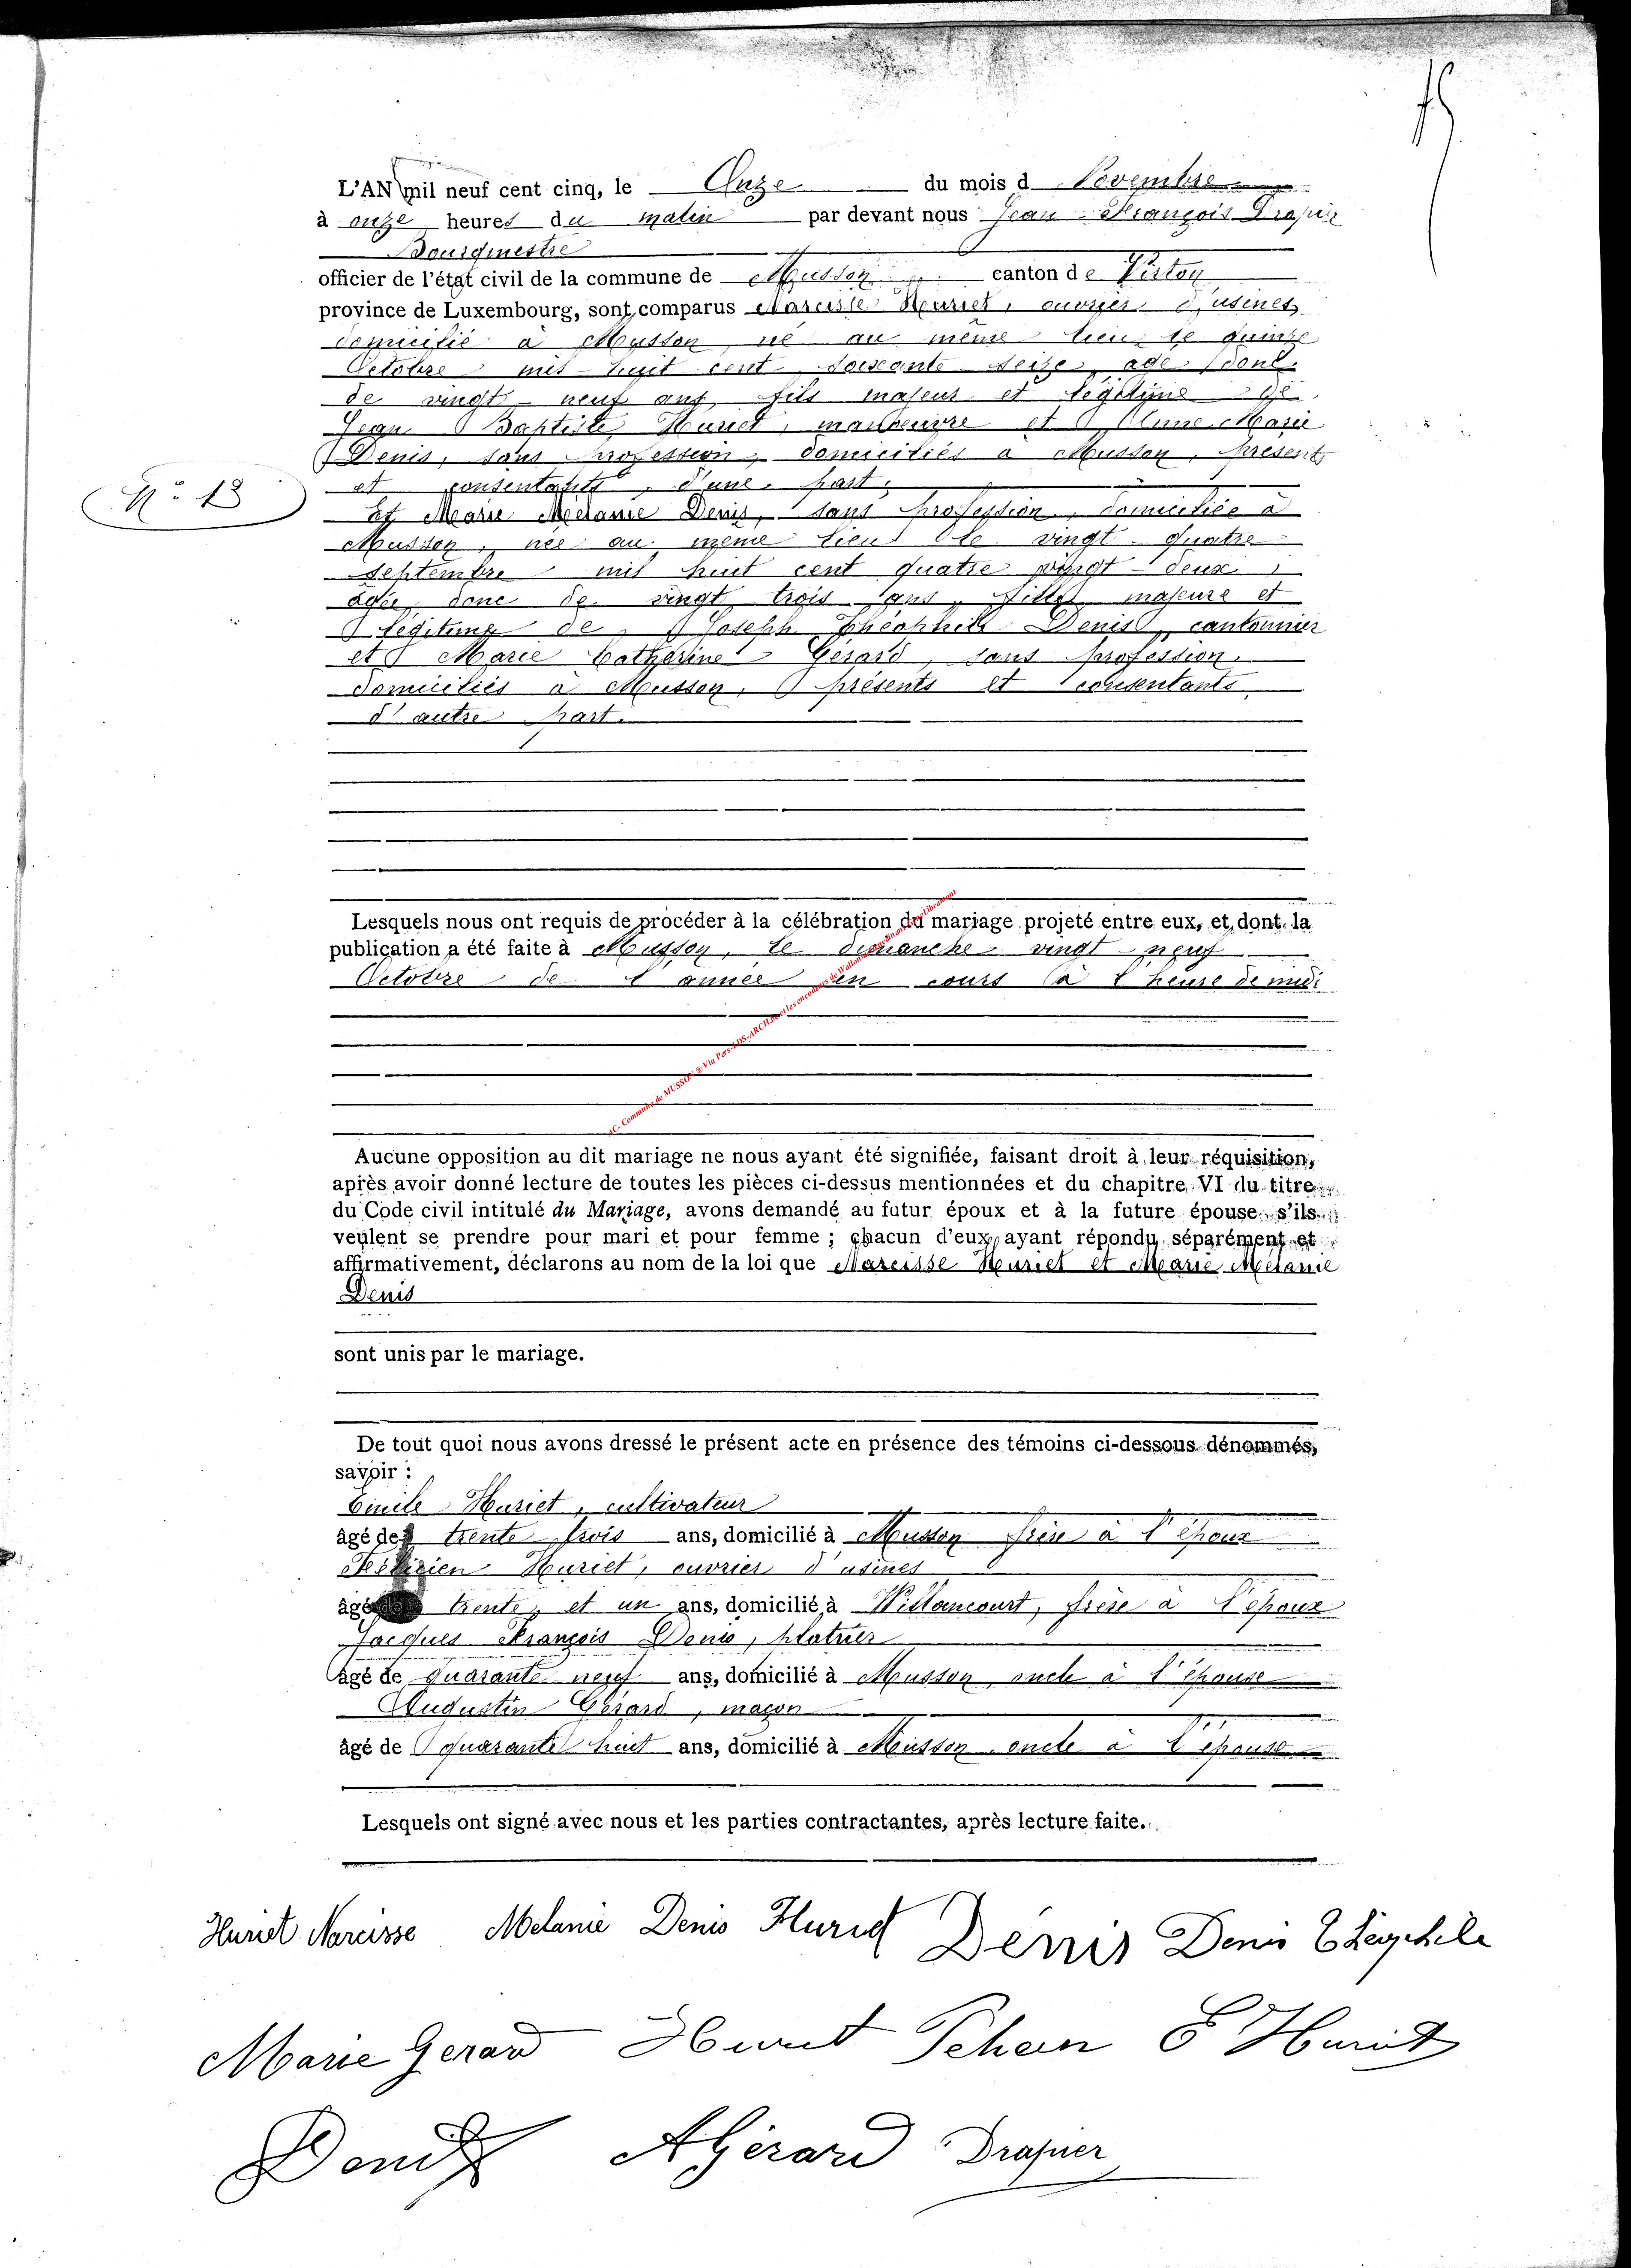 15
L'AN mil neuf cent cinq, le Onze du mois d Novembre
à onze heures du matin par devant nous Jean François Drapier
Bourgmestre
officier de l'état civil de la commune de Musson canton de Virton
province de Luxembourg, sont comparus Narcisse Huriet, ouvrier d'usines
domicilié à Musson, né au même lieu le quinze
Octobre mil huit cent soixante seize, âgé donc
de vingt-neuf ans, fils majeur et légitime de
Jean Baptiste Huriet, manoeuvre et Anne Marie
Denis, sans profession, domiciliés à Musson, présents
et consentants, d'une part,
N° 13
Et Marie Mélanie Denis, sans profession, domiciliée à
Musson, née au même lieu le vingt-quatre
septembre mil huit cent quatre vingt deux,
âgée donc de vingt trois ans, fille majeure et
légitime de Joseph Théophile Denis, cantonnier
et Marie Catherine Gérard, sans profession,
domiciliés à Musson, présents et consentants
d'autre part.
Lesquels nous ont requis de procéder à la célébration du mariage projeté entre eux, et dont la
publication a été faite à Musson, le dimanche vingt neuf
Octobre de l'année en cours à l'heure de midi
AC- Commune de MUSSON ® Via Pers-EDS-ARCH.be et les encodeurs de Wallonie Libramont
Aucune opposition au dit mariage ne nous ayant été signifiée, faisant droit à leur réquisition,
après avoir donné lecture de toutes les pièces ci-dessus mentionnées et du chapitre VI du titre
du Code civil intitulé du Mariage, avons demandé au futur époux et à la future épouse s'ils
veulent se prendre pour mari et pour femme ; chacun d'eux ayant répondu séparément et
affirmativement, déclarons au nom de la loi que Narcisse Huriet et Marie Mélanie
Denis
sont unis par le mariage.
De tout quoi nous avons dressé le présent acte en présence des témoins ci-dessous dénommés,
savoir :
Emile Huriet, cultivateur
âgé de trente trois ans, domicilié à Musson frère à l'époux
Félicien Huriet, ouvrier d'usines
âgé de trente et un ans, domicilié à Willancourt, frère à l'époux
Jacques François Denis, platrier
âgé de quarante neuf ans, domicilié à Musson oncle à l'épouse
Augustin Gérard, maçon
âgé de quarante huit ans, domicilié à Musson oncle à l'épouse
Lesquels ont signé avec nous et les parties contractantes, après lecture faite.
Huriet Narcisse Melanie Denis Huriet Denis Denis Théophile
Marie Gerard Huriet E Huriet
Denis AGérard Drapier